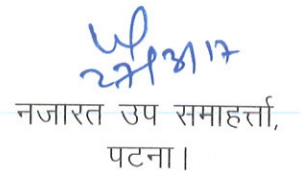 27/3/17
नजारत उप समाहर्त्ता,
पटना।